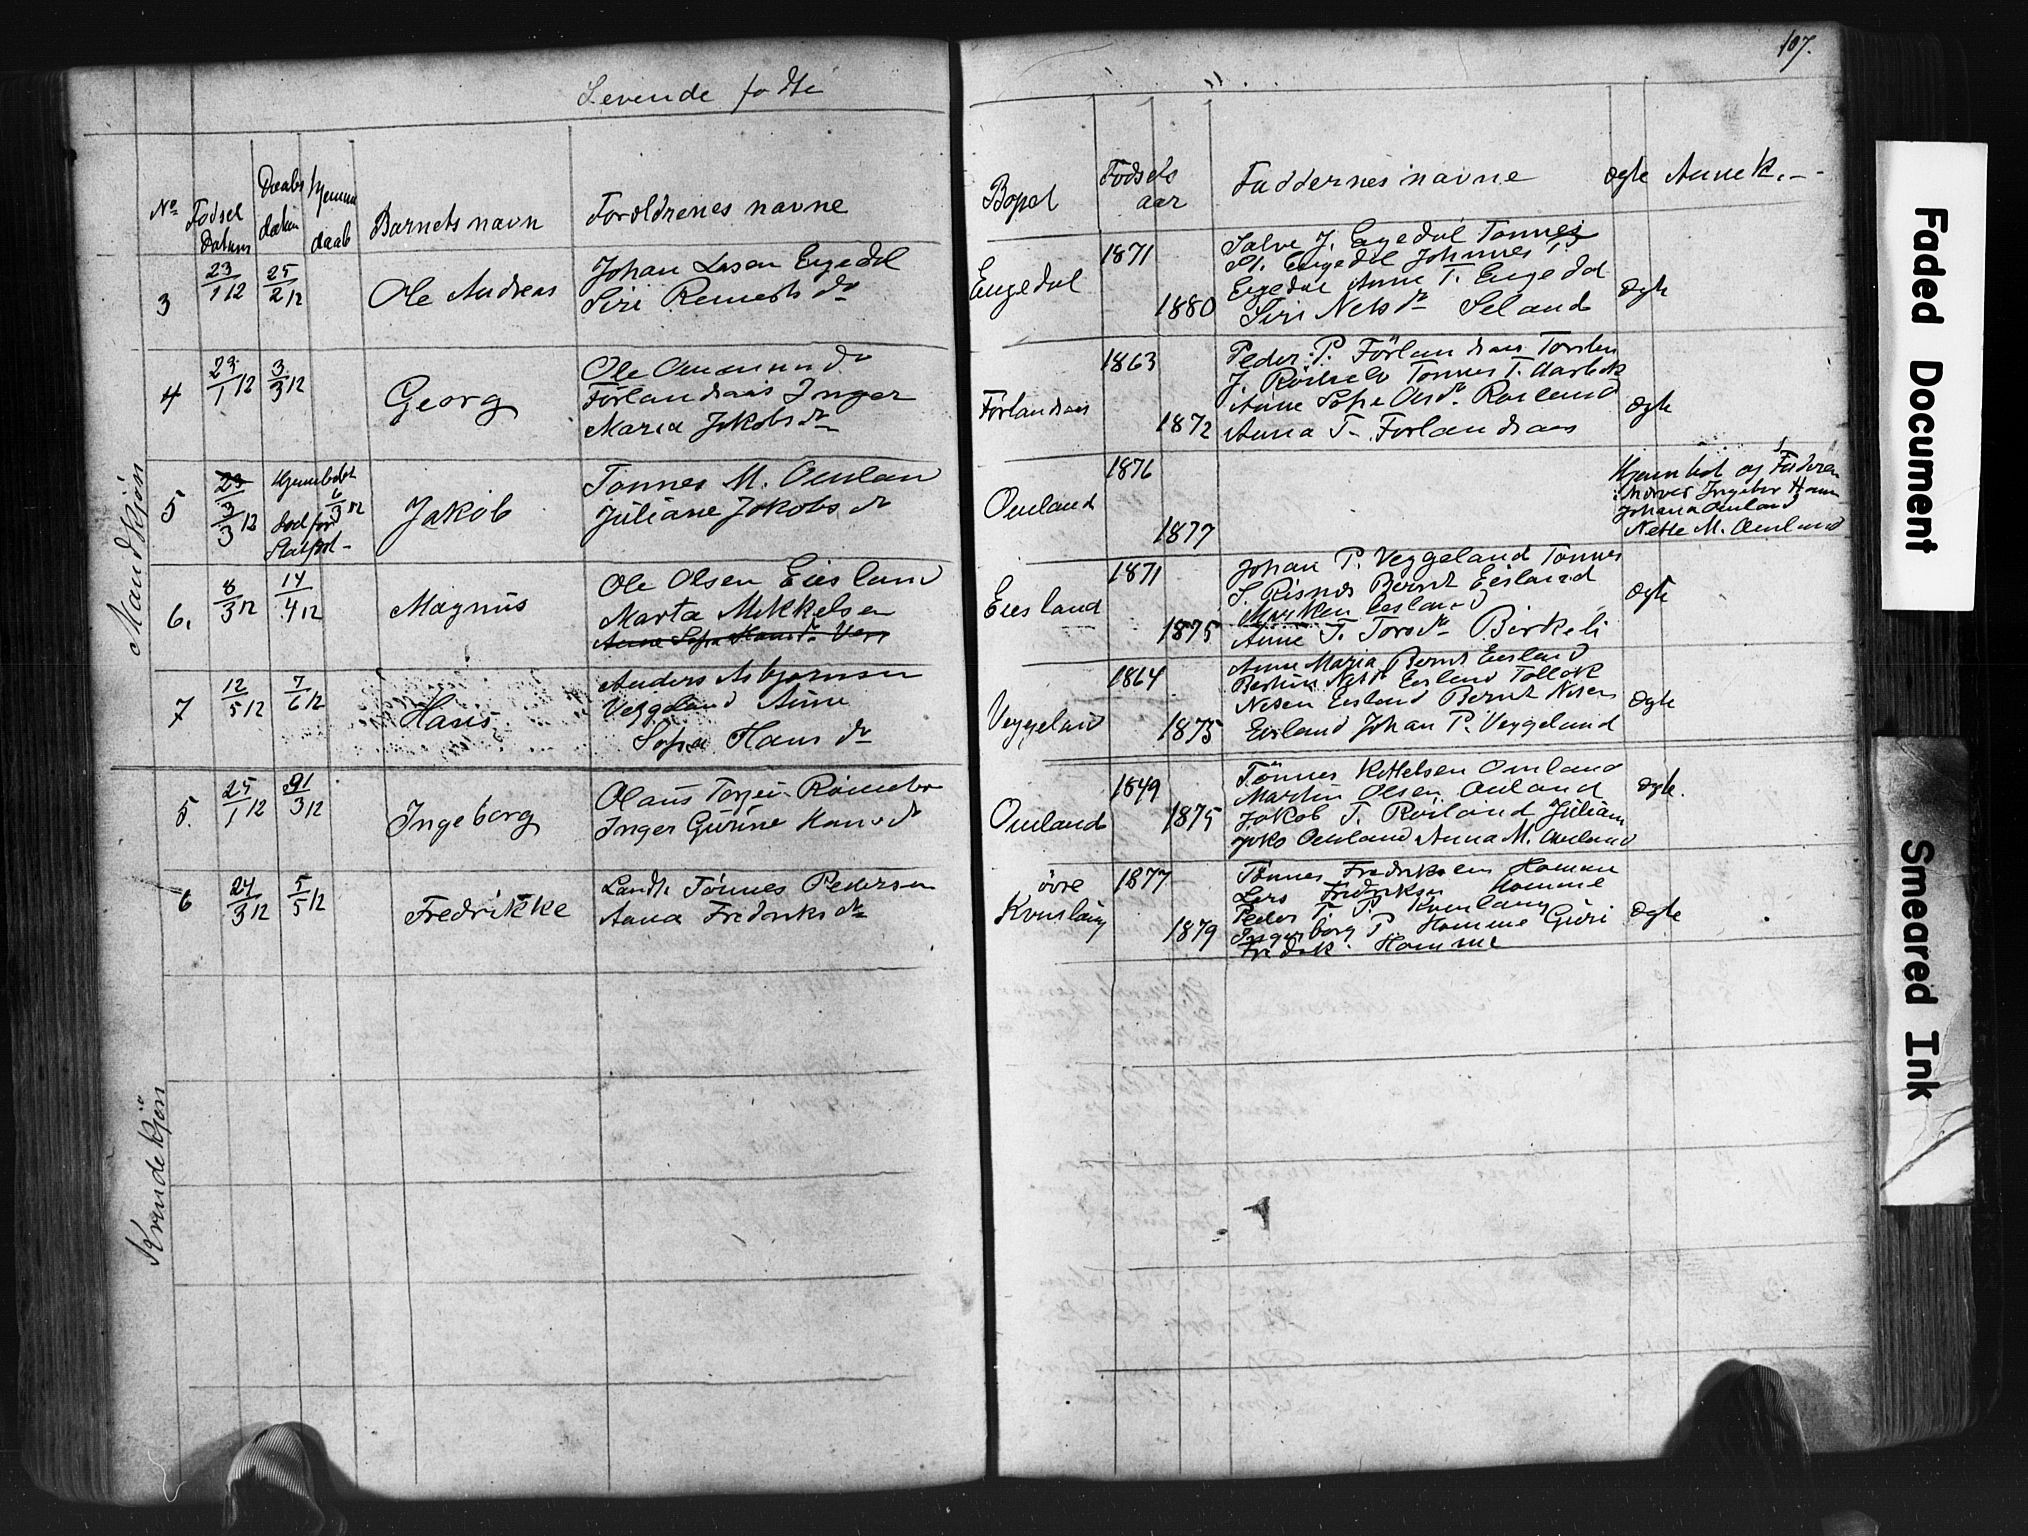 107.
Levende fødte
No
Fødsel
datum
Daabs
datum
hjemme
daab
Barnets navn
Forældrenes navne
Bopæl
Fødsels
aar
Faddernes navne
Ægte
Anmerk.
Mandkjøn
3
23/1 12
25/2 12
Ole Andreas
Johan Larsen Eigedal
Siri Reinerts dr
Eigedal
1871
1880
Salve J. Eigedal Tønnes
St. Eigedal Johnnes T.
Eigedal Anne T. Eigedal
Siri Nels dr Seland
Ægte
4
23/1 12
3/3 12
Georg
Ole Omund
Førlandsaas Inger
Maria Jakobs dr
Førlandsaas
1863
1872
Peder P. Førlandsaas Torsten
J. Tønnes T.
Anne Sofie Ols dr Røiland
Anna T. Førlandsaas
Ægte
5
3/3 12
Hjemmedøbt
6/3 12
død før
Jakob
Tønnes M. Omland
Juliane Jakobs dr
Omland
1876
1877
Hjemdøbt og Faderen
Ingebor
Johana Omland
Nette M. Omland
6.
8/3 12
14/4 12
Magnus
Ole Olsen Eiesland
Marta Mikkelsen
Anne Sofie Hans dr Veg
Eiesland
1871
1875
Johan P. Veggeland Tønnes
S. Risnes Bernt Eiesland
Eiesland
Anne T. Tors dr Birkeli
Ægte
7
12/5 12
7/6 12
Hans
Anders Asbjørnsen
Veggeland Anne
Sofie Hans dr
Veggeland
1864
1875
Anne Maria Bernt Eiesland
Nels dr Eiesland Tollak
Nelsen Eiesland Bernt Nelsen
Eiesland Johan P. Veggeland
Ægte
Kvindekjøn
5.
25/1 12
31/3 12
Ingeborg
Olaus Torjei
Inger Gurine Hans dr
Omland
1849
1875
Tønnes Kettelsen Omland
Martin Olsen Omland
Jakob T. Røiland Julian
Jako Omland Anna M. Omland
Ægte.
6
24/3 12
5/5 12
Fredrikke
Landh. Tønnes Pedersen
Anna Fredriks dr
øvre
Kvinlaug
1877
1879
Tønnes Fredriksen Homme
Lars Fredriksen Homme
Peder T. P. Kvinlaug
Ingeborg P. Homme Guri
Fredrik. Homme
Ægte
Faded Document
Smeared Ink